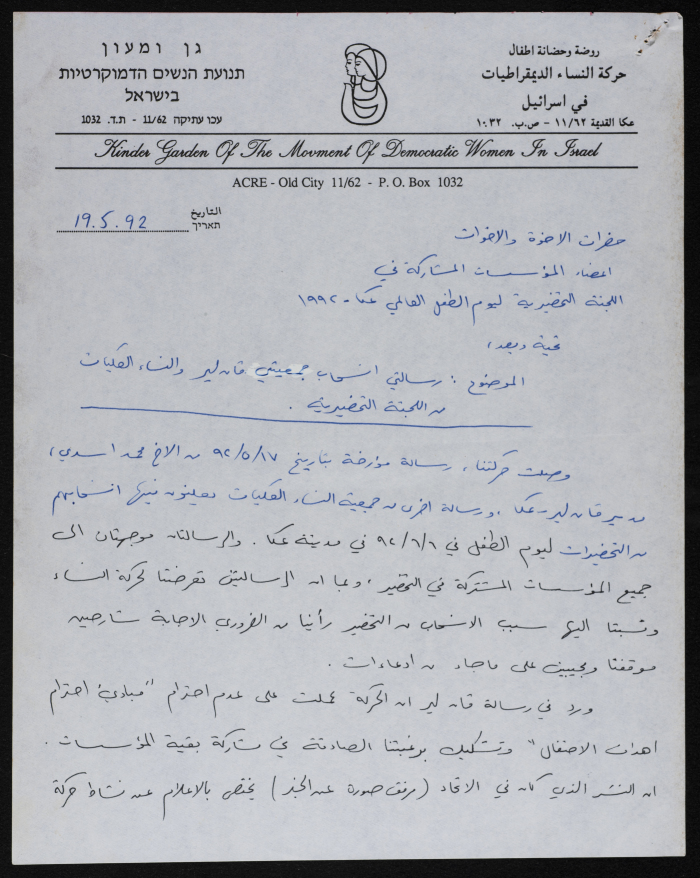 גן ומעון
תנועת הנשים הדמוקרטיות
בישראל
עכו עתיקה 11/62 - ת.ד. 1032
روضة وحضانة اطفال
حركة النساء الديمقراطيات
في اسرائيل
عكا القديمة ١١/٦٢ - ص.ب. ١٠٣٢
Kinder Garden Of The Movment Of Democratic Women In Israel
ACRE - Old City 11/62 - P. O. Box 1032
التاريخ
תאריך
19.5.92
حضرات الاخوة والاخوات
اعضاء المؤسسات المشاركة في
اللجنة التحضيرية ليوم الطفل العالمي عكا - ١٩٩٢
تحية وبعد،
الموضوع : رسالتي انسحاب جمعيتي فان لير والنساء العكيات
من اللجنة التحضيرية .
وصلت حركتنا، رسالة مؤرخة بتاريخ ٩٢/٥/١٧ من الاخ محمد اسدي،
مدير فان لير - عكا، ورسالة اخرى من جمعية النساء العكيات يعلنون فيها انسحابهم
من التحضيرات ليوم الطفل في ٩٢/٦/٦ في مدينة عكا. والرسالتان موجهتان الى
جميع المؤسسات المشتركة في التحضير، وبما ان الرسالتين تعرضتا لحركة النساء
ونسبتا اليها سبب الانسحاب من التحضير رأينا من الضروري الاجابة شارحين
موقفنا ومجيبين على ما جاء من ادعاءات .
ورد في رسالة فان لير ان الحركة عملت على عدم احترام "مبادئ احترام
اهداف الاحتفال" وتشكيك برغبتنا الصادقة في مشاركة بقية المؤسسات .
ان النشر الذي كان في الاتحاد (مرفق صورة عن الخبر) يختص بالاعلام عن نشاط حركة